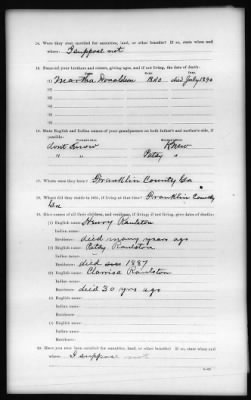 14. Were they ever enrolled for annuities, land, or other benefits? If so, state when and
where: I suppose not
15. Name all your brothers and sisters, giving ages, and if not living, the date of death:
(1) Martha died July 1890
16. State English and Indian names of your grandparents on both father's and mother's side, if
possible:
dont know
" " Patsy "
17. Where were they born? Franklin County Ga
18. Where did they reside in 1851, if living at that time? Franklin County
Ga
19. Give names of all their children, and residence, if living; if not living, give dates of deaths:
(1) English name: Henry Raulston
Indian name:
Residence: died many years ago
(2) English name: Patsy Raulston
Indian name:
Residence: died 1887
(3) English name: Clarisa Raulston
Indian name:
Residence: died 30 yrs ago
(4) English name:
Indian name:
Residence:
20. Have you ever been enrolled for annuities, land, or other benefits? If so, state when and
where: I suppose not